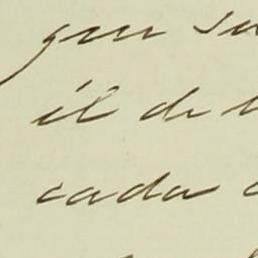 que su
él de
cada